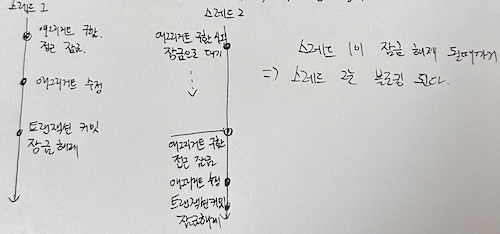 스레드 1
애그리거트 구함.
접근 잠금.
애그리거트 수정
트랜잭션 커밋
잠금 해제
스레드 2
애그리거트 구함 시도
잠금으로 대기
애그리거트 구함
접근 잠금
애그리거트 수정
트랜잭션 커밋
잠금해제
스레드 1이 잠금 해제 될때까지
=> 스레드 2는 블로킹 된다.